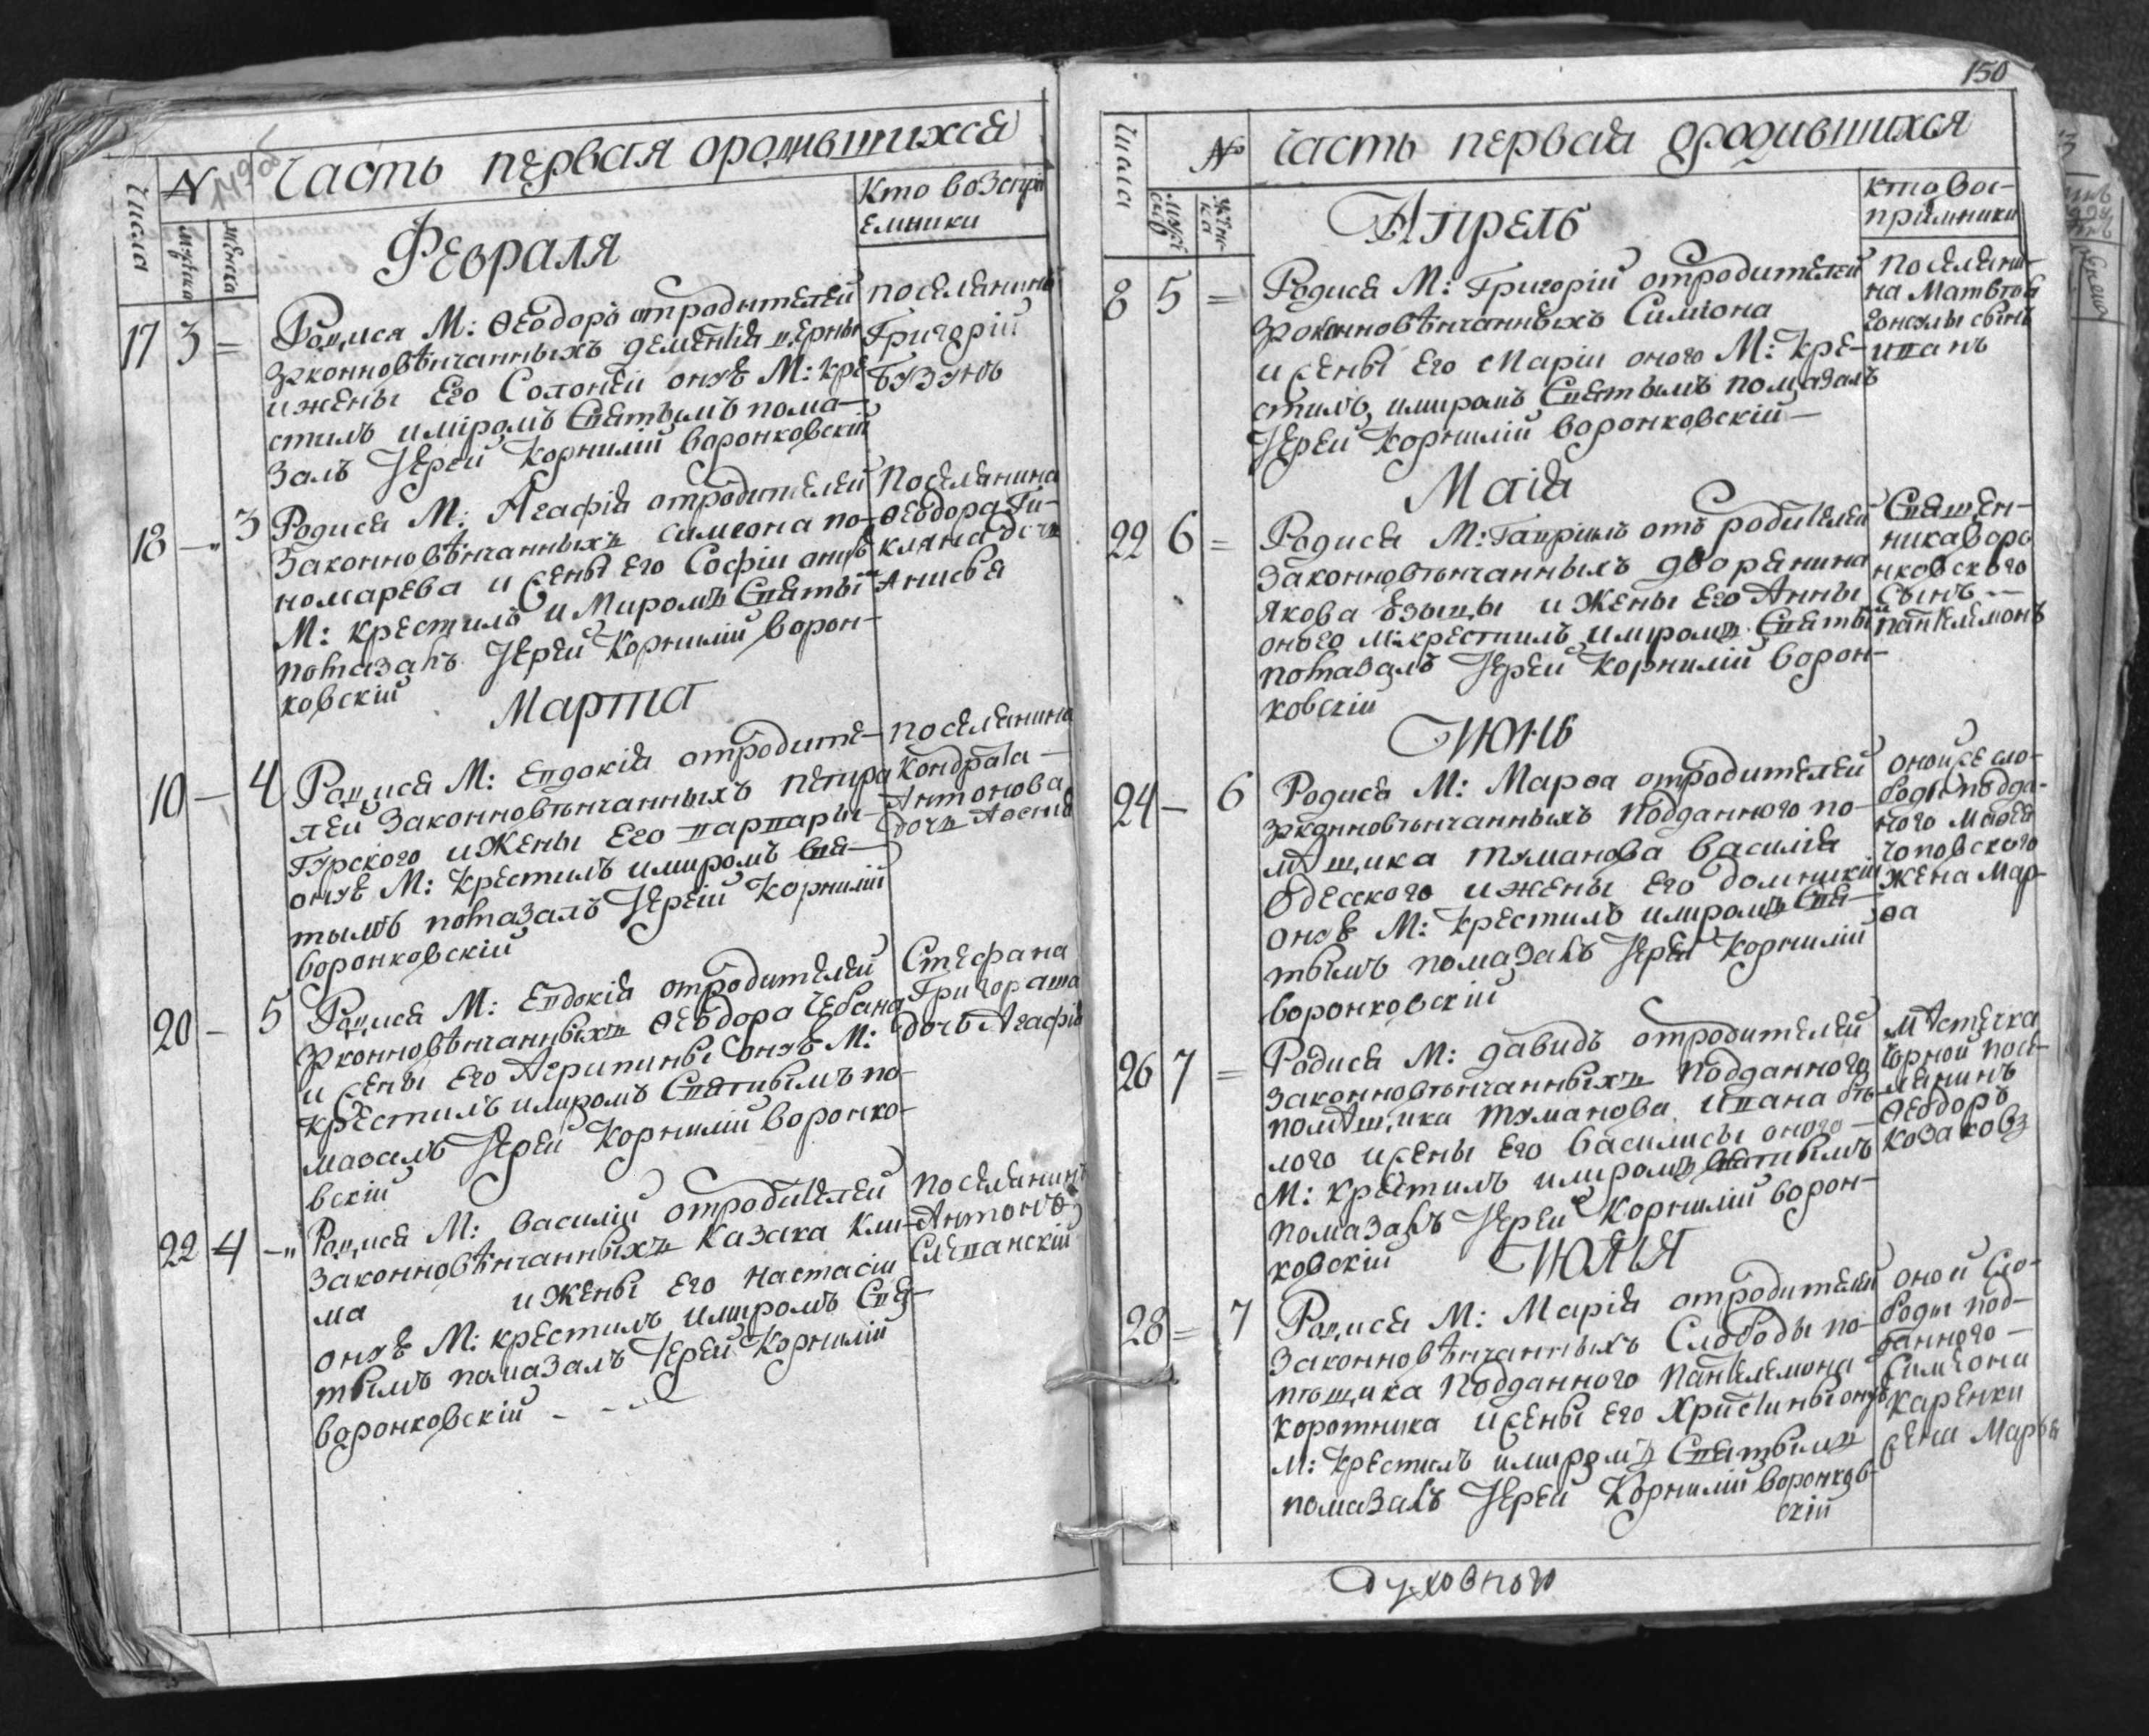 N Часть первая ородившихся
Числа
мужска
женска
Кто возспри
емники
Февраля
17 3 =
Родися М: Ѳеодоръ отродителей
зконновѣнчанныхъ дементія
и жены Его Солоніи онуѣ М: кре
стилъ имѵромъ Святымъ пома-
залъ Іерей Корнилій воронковскій
поселянинъ
Григорій
Бузунъ
18 - 3
Родися М: Агафія отродителей
Законновѣнчанныхъ симеона по-
номарева и жены Его Софіи онуѣ
М: крестилъ и Миромъ Святы
помазалъ Іерей Корнилій ворон-
ковскій
Поселянина
Ѳеодора Ги-
кляна дочь
Анисья
Марта
10 - 4
Родися М: Евдокія отродите-
лей Законновѣнчанныхъ петра
Гурского и Жены Его варвары
онуѣ М: Крестилъ имиромъ Свя-
тымъ помазалъ Іерей Корнилій
воронковскій
поселянина
Кондрата -
Антонова
дочь
20 - 5
Родися М: Евдокія отродителей
зконновѣнчанныхъ Ѳеодора Чебана
и жены Его Агрипины онуѣ М:
крестилъ имиромъ Святымъ по-
мазалъ Іерей Корнилій воронко-
вскій
Стефана
Григораша
дочь Агафія
22 4 -"
Родися М: василій отродителей
Законновѣнчанныхъ Казака Кли-
ма и Жены Его Настасіи
онуѣ М: крестилъ имиромъ Свя-
тымъ помазалъ Іерей Корнилій
воронковскій - - -
поселянинъ
Антонъ
Слѣпанскій
150
Числа
N часть первая ородившихся
мужс
ска
женс
ка
кто вос-
приемники
Апрель
8 5 =
Родися М: Григорій отродителей
зконновѣнчанныхъ Симіона
и жены Его Маріи оного М: кре-
стилъ имиромъ Святымъ помазалъ
Іерей Корнилій воронковскій -
поселяни-
на Матвѣя
сынъ
иванъ
Маія
22 6 =
Родися М: Гавріилъ отъ родителей
Законновѣнчанныхъ дворянина
Якова и Жены Его Анны
оного М: крестилъ имиромъ Святы
помазалъ Іерей Корнилій ворон-
ковскій
Священ-
ника воро
нковского
сынъ -
пантелимонъ
Июнь
24 - 6
Родися М: Марѳа отродителей
зконновѣнчанныхъ Подданного по-
мѣщика туманова василія
Одесского и жены Его домникіи
онуѣ М: крестилъ имиромъ Свя-
тымъ помазалъ Іерей Корнилій
воронковскій
оной же сло-
боды подда-
ного
чоповского
жена Мар-
ѳа
26 7 =
Родися М: давидъ отродителей
Законновѣнчанныхъ Подданного
помѣщика туманова ивана бѣ-
лого и жены Его василисы оного -
М: крестилъ имиромъ Святымъ
помазалъ Іерей Корнилій ворон-
ковскій
мѣстечка
чорной посе-
лянинъ
Ѳеодоръ
Козаковъ
Июля
28 = 7
Родися М: Марія отродителей
Законновѣнчанныхъ Слободы по-
мѣщика Подданного Пантелемона
коротника и жены Его Христины онуѣ
М: Крестилъ имиромъ Святымъ
помазалъ Іерей Корнилій воронков-
скій
оной Сло-
боды под-
данного -
Симеона
Каренки
жена Марья
Духовного